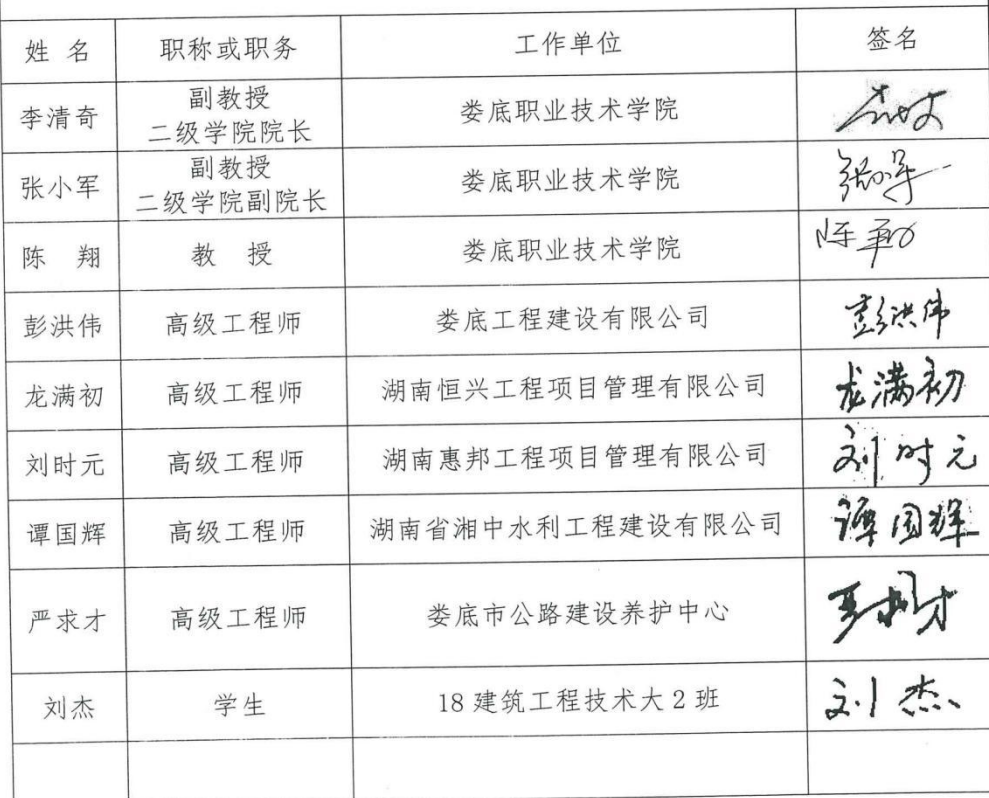 姓 名 职称或职务 工作单位 签名
李清奇 副教授 娄底职业技术学院
二级学院院长
张小军 副教授 娄底职业技术学院 张小军
二级学院副院长
陈 翔 教 授 娄底职业技术学院 陈翔
彭洪伟 高级工程师 娄底工程建设有限公司 彭洪伟
龙满初 高级工程师 湖南恒兴工程项目管理有限公司 龙满初
刘时元 高级工程师 湖南惠邦工程项目管理有限公司 刘时元
谭国辉 高级工程师 湖南省湘中水利工程建设有限公司 谭国辉
严求才 高级工程师 娄底市公路建设养护中心
刘杰 学生 18建筑工程技术大2班 刘杰